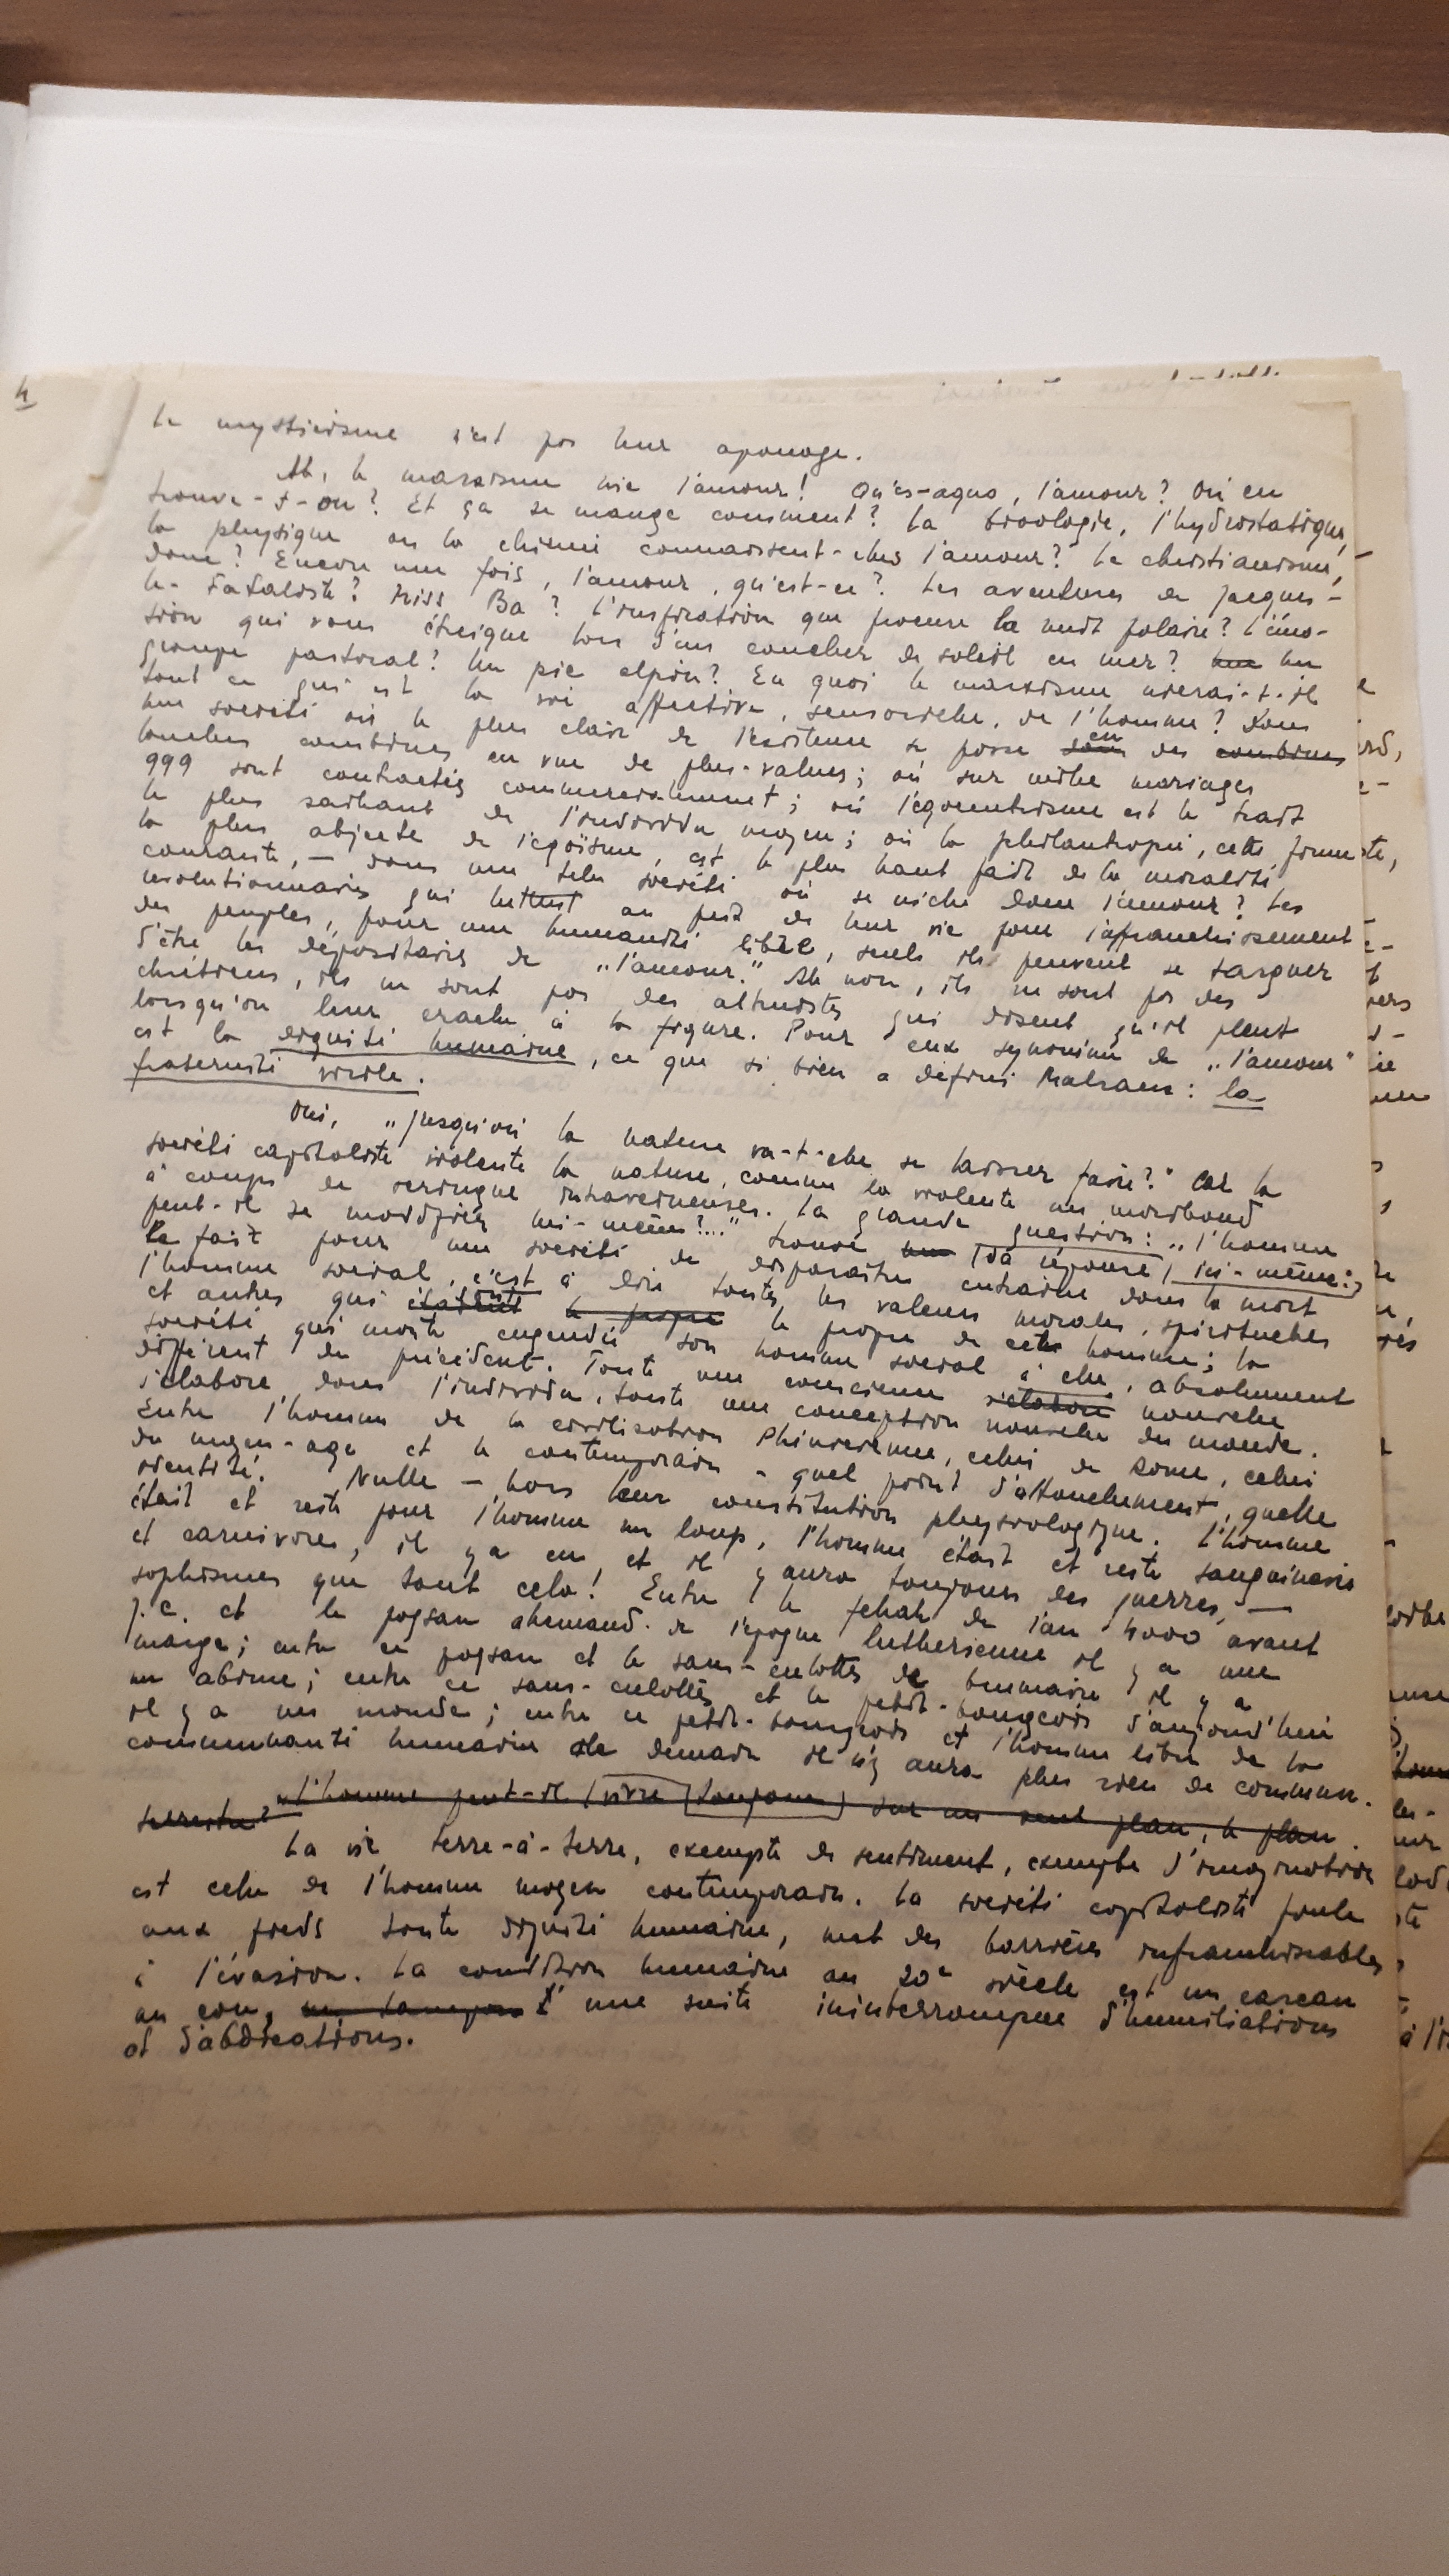 4
Le mysticisme n'est pas leur apanage.
Ah, le marxisme nie l'amour! Qu'es-aquo, l'amour? Où en
trouve-t-on? Et ça se mange comment? La biologie, l'hydrostatique,
la physique ou la chimie connaissent-elles l'amour? Le christianisme,
donc? Encore une fois, l'amour, qu'est-ce? Les aventures de Jacques-
le-Fataliste? Miss Ba? L'inspiration que procure la nuit polaire? L'émo-
sion qui vous étreigne lors d'un coucher de soleil en mer? Un
groupe pastoral? Un pic alpin? En quoi le marxisme nierai-t-il
tout ce qui est la vie affective, sensorielle, de l'homme? Dans
une société où le plus clair de l'existence se passe en des combines
louches combinées en vue de plus-values; où sur mille mariages
999 sont contractés commercialement; où l'égocentrisme est le trait
le plus saillant de l'individu moyen; où la philantropie, cette forme
la plus abjecte de l'égoïsme, est le plus haut fait de la moralité
courante, — dans une telle société où se niche donc l'amour? Les
révolutionnaires qui luttent au prix de leur vie pour l'afranchissement
des peuples, pour une humanité libre, seuls ils peuvent se targuer
d'être les dépositaires de „l'amour." Ah non, ils ne sont pas des
chrétiens, ils ne sont pas des altruistes qui disent qu'il pleut
lorsqu'on leur crache à la figure. Pour eux synonime de „l'amour"
est la dignité humaine, ce que si bien a défini Malraux: la
fraternité virile.
Oui, „jusqu'où la nature va-t-elle se laisser faire?" Car la
société capitaliste violente la nature, comme la violente un moribond
à coups de seringue intraveineuses. La grande question: „l'homme
peut-il se modifier lui-même?..." trouve sa réponse ici-même:
le fait pour une société de disparaître entraîne dans la mort
l'homme social, c'est à dire toutes les valeurs morales, spirituelles
et autres qui étaient le propre le propre de cet homme; la
société qui monte engendre son homme social à elle, absolument
différent du précédent. Toute une conscience s'élabore nouvelle
s'élabore dans l'individu, toute une conception nouvelle du monde.
Entre l'homme de la civilisation Phinicienne, celui de Rome, celui
du moyen-age et le contemporain - quel point d'attouchement, quelle
identité. Nulle — hors leur constitution physiologique. L'homme
était et reste pour l'homme un loup, l'homme était et reste sanguinaire
et carnivore, il y a eu et il y aura toujours des guerres, —
sophismes que tout cela! Entre le fellah de l'an 4000 avant
J.C. et le paysan allemand de l'époque luthérienne il y a une
marge; entre ce paysan et le sans-culottes de brumaire il y a
un abîme; entre ce sans-culottes et le petit-bourgeois d'aujourd'hui
il y a un monde; entre ce petit-bourgeois et l'homme libre de la
communauté humaine de demain il n'y aura plus rien de commun.
„L'homme peut-il (vivre toujours) sur un seul plan, le plan
terrestre?"
La vie terre-à-terre, exempte de sentiment, exempte d'imagination
est celle de l'homme moyen contemporain. La société capitaliste foule
aux pieds toute dignité humaine, met des barrières infranchissables
à l'évasion. La condition humaine au 20e siècle est un carcan
au cou, une suite ininterrompue d'humiliations
et d'abdications.